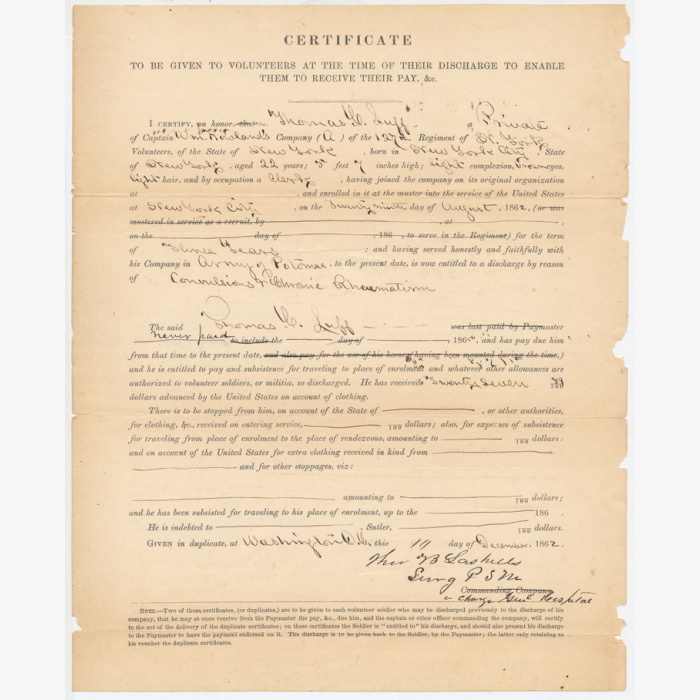 CERTIFICATE
TO BE GIVEN TO VOLUNTEERS AT THE TIME OF THEIR DISCHARGE TO ENABLE
THEM TO RECEIVE THEIR PAY, &c.
I CERTIFY, on honor, that Thomas C. Luff a Private
of Captain Wm. Howland's Company (A) of the 127th Regiment of New York
Volunteers, of the State of New York, born in New York City, State
of New York, aged 22 years; 5 feet 7 inches high; light complexion, brown eyes,
light hair, and by occupation a Clerk, having joined the company on its original organization
at , and enrolled in it at the muster into the service of the United States
at New York City, on the Twenty ninth day of August, 1862, (or was
mustered in service as a recruit, by , at ,
on the day of , 186 , to serve in the Regiment) for the term
of Three Years : and having served honestly and faithfully with
his Company in Army of Potomac to the present date, is now entitled to a discharge by reason
of Convulsions & Chronic Rheumatism
The said Thomas C. Luff was last paid by Paymaster
never paid to include the day of 186 , and has pay due him
from that time to the present date, and also pay for the use of his horse (having been mounted during the time.)
and he is entitled to pay and subsistence for traveling to place of enrolment and whatever other allowances are
authorized to volunteer soldiers, or militia, so discharged. He has received Twenty Seven /100
dollars advanced by the United States on account of clothing.
There is to be stopped from him, on account of the State of , or other authorities,
for clothing, &c., received on entering service, /100 dollars; also, for expenses of subsistence
for traveling from place of enrolment to the place of rendezvous, amounting to /100 dollars:
and on account of the United States for extra clothing received in kind from
and for other stoppages, viz:
amounting to /100 dollars;
and he has been subsisted for traveling to his place of enrolment, up to the 186 .
He is indebted to Sutler, /100 dollars.
GIVEN in duplicate, at Washington D.C. this day of December 1862.
Surg
Commanding Company
in charge Genl Hospital
NOTE.—Two of these certificates, (or duplicates,) are to be given to each volunteer soldier who may be discharged previously to the discharge of his
company, that he may at once receive from the Paymaster the pay, &c., due him, and the captain or other officer commanding the company, will certify
to the act of the delivery of the duplicate certificates; on these certificates the Soldier is "entitled to" his discharge, and should also present his discharge
to the Paymaster to have the payment endorsed on it. The discharge is to be given back to the Soldier, by the Paymaster; the latter only retaining as
his voucher the duplicate certificates.